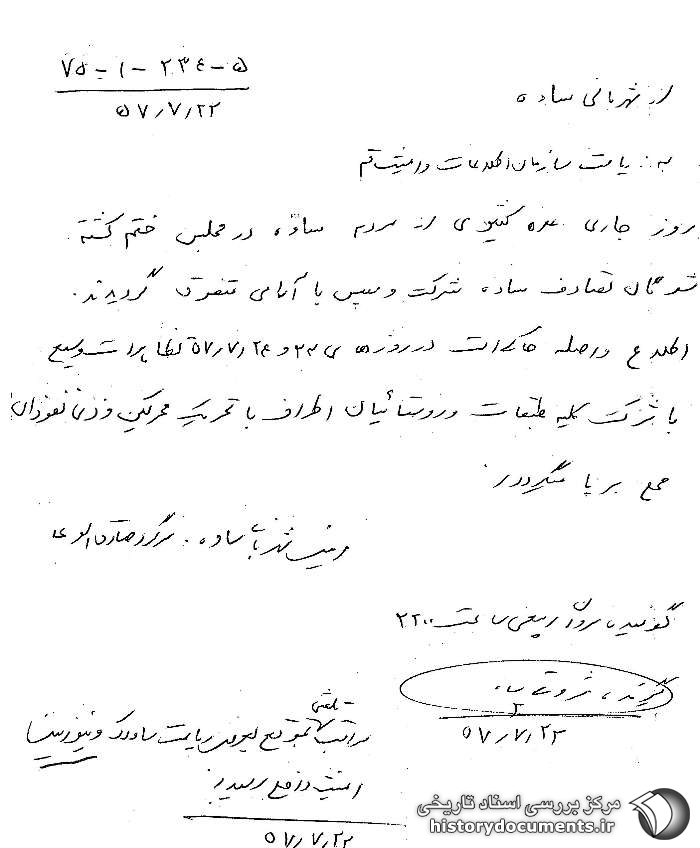 ۷۵-۱-۲۳۴-۵
۵۷/۷/۲۲
از شهربانی ساوه
به: ریاست سازمان اطلاعات و امنیت قم
روز جاری عده کثیری از مردم ساوه در مجلس ختم کشته
شدگان تصادف ساوه شرکت و سپس با آرامی متفرق گردیدند.
اطلاع واصله حاکی است در روزهای ۲۳ و ۵۷/۷/۲۴ تظاهرات وسیع
با شرکت کلیه طبقات و روستائیان اطراف با تحریک محرکین و ذی نفوذان
محل برپا میگردد.
رئیس شهربانی ساوه. سرگرد
گوینده ساعت ۲۲۰۰
گیرنده، ثروت
۵۷/۷/۲۲
تلفنی
مراتب ریاست ساواک
امنیت داخلی رسید
۵۷/۷/۲۲
مرکز بررسی اسناد تاریخی
historydocuments.ir